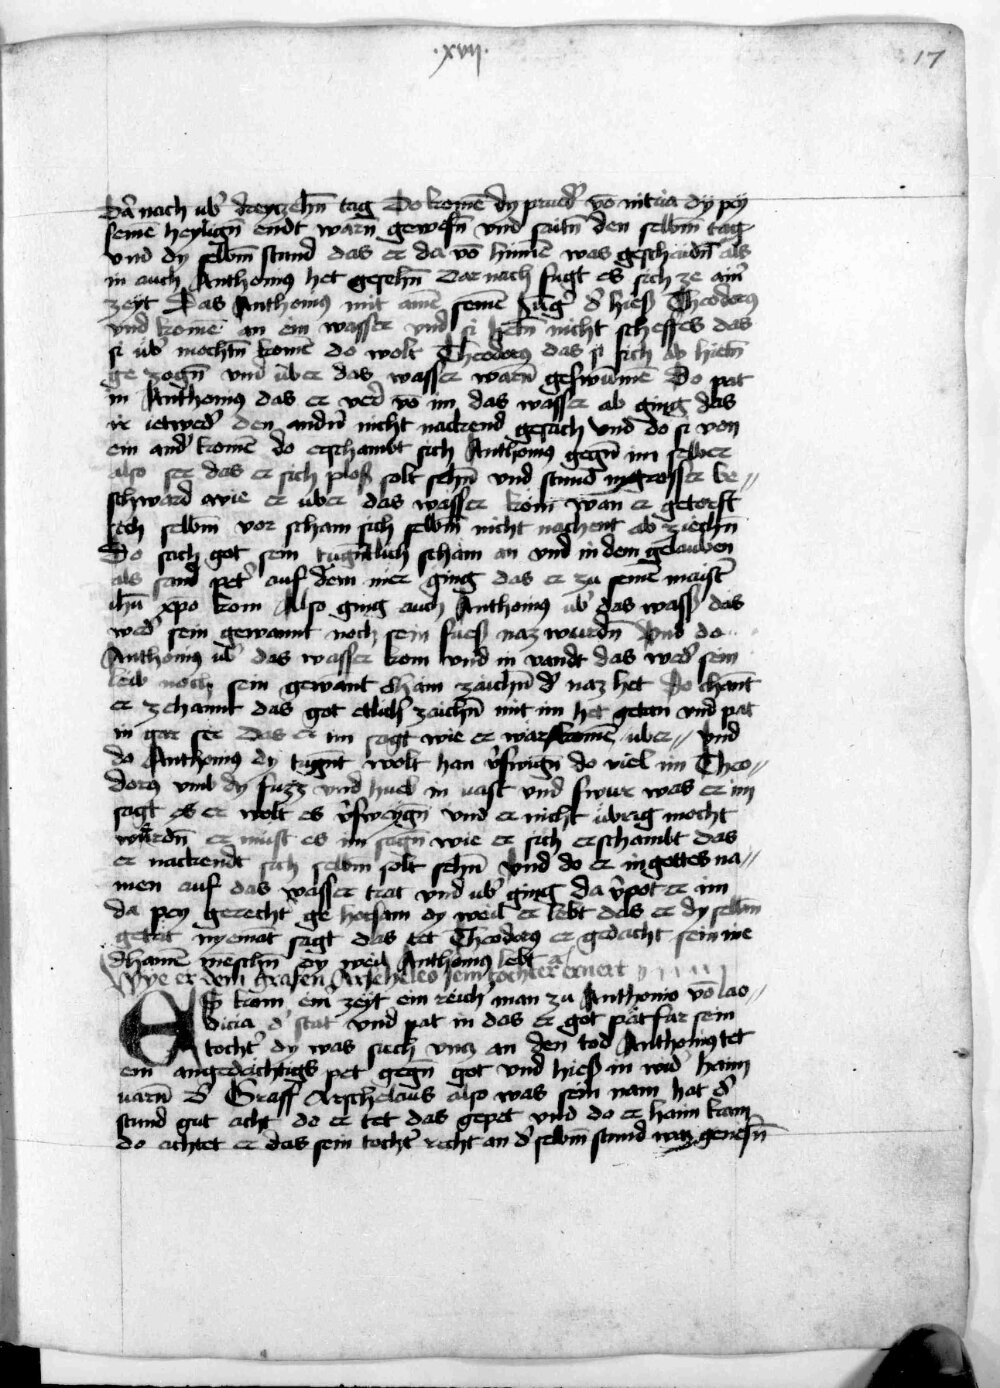 ·xvij·
17
Dar nach ub' dreyzehn tag Do komē dy prud' vō nitria dy pey
seinē heyligñ endt warñ gewesñ vnd saitñ den selbm̄ tag
vnd dy selbm̄ stund das er da vō hinnē was geschaidñ als
in auch Anthonius het gesehñ Dar nach fugt es sich ze ain'
zeyt Das Anthonius mit ainē seinē Jūg' d' hieß Theodorus
vnd komē an ein wasser vnd si hetñ nicht scheffes das
si ub' mochtñ komē do wolt Theodorus das si sich ab hietñ
ge zogñ vnd über das wasser warñ geswūmē Do pat
in Anthonius das er verr vō im das wasser ab ging das
ir ietwed' den andñ nicht nackend gesäch Vnd do si von
ein and' komē do erschambt sich Anthonius gegñ im selber
also ser das er sich ploß solt sehñ vnd stund in grosser be//
schward wie er uber das wasser kōm wan er getorst
sich selbm̄ vor scham sich selbm̄ nicht nachent ab ziechñ
Do sach got sein tugñtlich scham an vnd in dem gelauben
als sand pet' auf dem mer ging das er zu seinē maist'
ihū xp̄o kom Also ging auch Anthonius ub' das wass' das
wed' sein gewannt noch sein fuess naz wurdñ Vnd do
Anthonius ub' das wasser kom vnd in vandt das wed' sein
leib noch sein gewant chain zaichñ d' naz het Do chant
er zehannt das got etlich zaichñ mit im het getan vnd pat
in gar ser Das er im sagt wie er wär komē uber // vnd
do Anthonius dy tugñt wolt han v'swign̄ do viel im Theo//
dorus vmb dy fuzz vnd hueb in vast vnd swur was er im
sagt es er wolt es v'sweygñ vnd er nicht übrig mocht
wurdñ er müst es im sagñ wie er sich erschambt das
er nackendt sich selbm̄ solt sehñ Vnd do er in gottes na//
men auf das wasser trat vnd ub' ging da v'pot er im
da pey gerecht' ge horsam dy weil er lebt das er dy selbm̄
getät nyemāt sagt das tet Theodorus er gedacht sein nie
chainē menschñ dy weil Anthonius lebt
Wye er dem grafen Archeleo sein tochter ernert
Es kom ein' zeyt ein reich' man zu Anthonio vō lao//
dicia d' stat vnd pat in das er got pät far sein
tocht' dy was siech vntz an den tod Anthonius tet
ein angedächtigs pet gegñ got vnd hieß in wid' haim
varñ D' Graff Arschelaus also was sein nam hat d'
stund gut acht do er tet das gepet vnd do er haim kam
do achtet er das sein tocht' recht an d' selbm̄ stund was genesñ